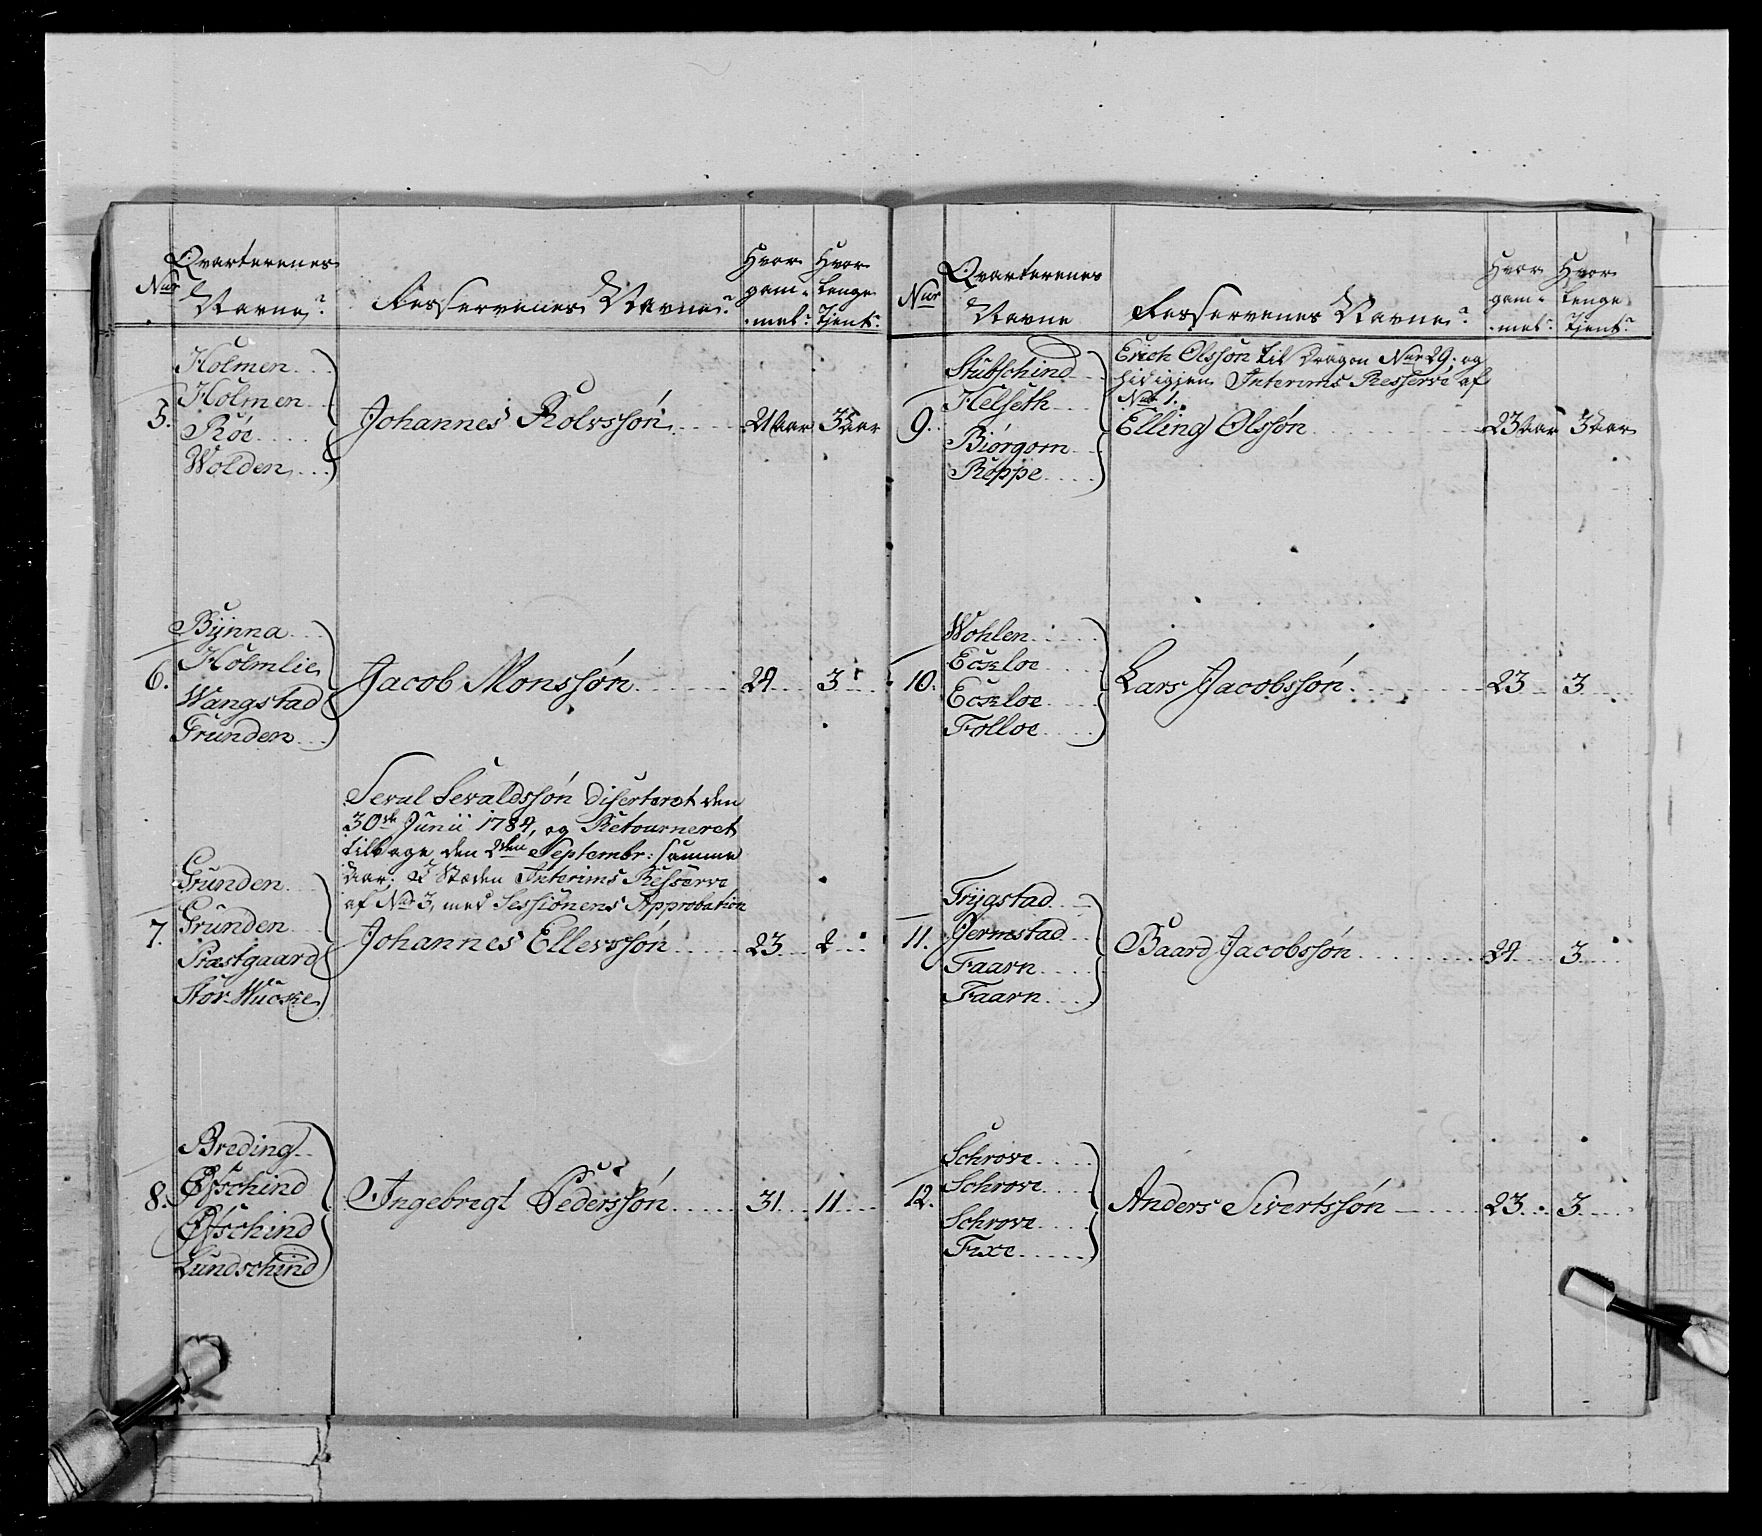 Nur
Qvarterenes
Navne
Resservenes Navne
Hvor
gam-
mel
Hvor
lenge
Tjent
5.
Holmen
Holmen
Röe
Wolden
Johannes Rolvssøn
21 aar
3 aar
6.
Bÿnna
Holmlie
Wangstad
Grunden
Jacob Monssøn
24
3
7.
Grunden
Grunden
Præstgaard
Stor Wucke
Seval Sevaldssøn diserteret den
30te Junii 1784, og Retourneret
tilbage den 2den Septembr: samme
Aar; I Stæden Interims Resserve
af No 3, med Sessionens Approbation
Johannes Ellevssøn
23
2
8.
Breding
Øfschind
Øfschind
Lundschind
Ingebrigt Pederssøn
31
11
Nur
Qvarterenes
Navne
Resservenes Navne
Hvor
gam-
mel
Hvor
lenge
Tjent
9.
Stubschind
Helseth
Biörgom
Reppe
Erich Olssøn til Dragon Nur 29, og
hid igjen Interims Resserve af
Nur 1.
Elling Olssøn
23 aar
3 aar
10.
Wohlen
Eckloe
Eckloe
Folloe
Lars Jacobssøn
23
3
11.
Trÿgstad
Jermstad
Faarn
Faarn
Baard Jacobssøn
24
3
12.
Schrove
Schrove
Schrove
Fixe
Anders Sivertssøn
23
3